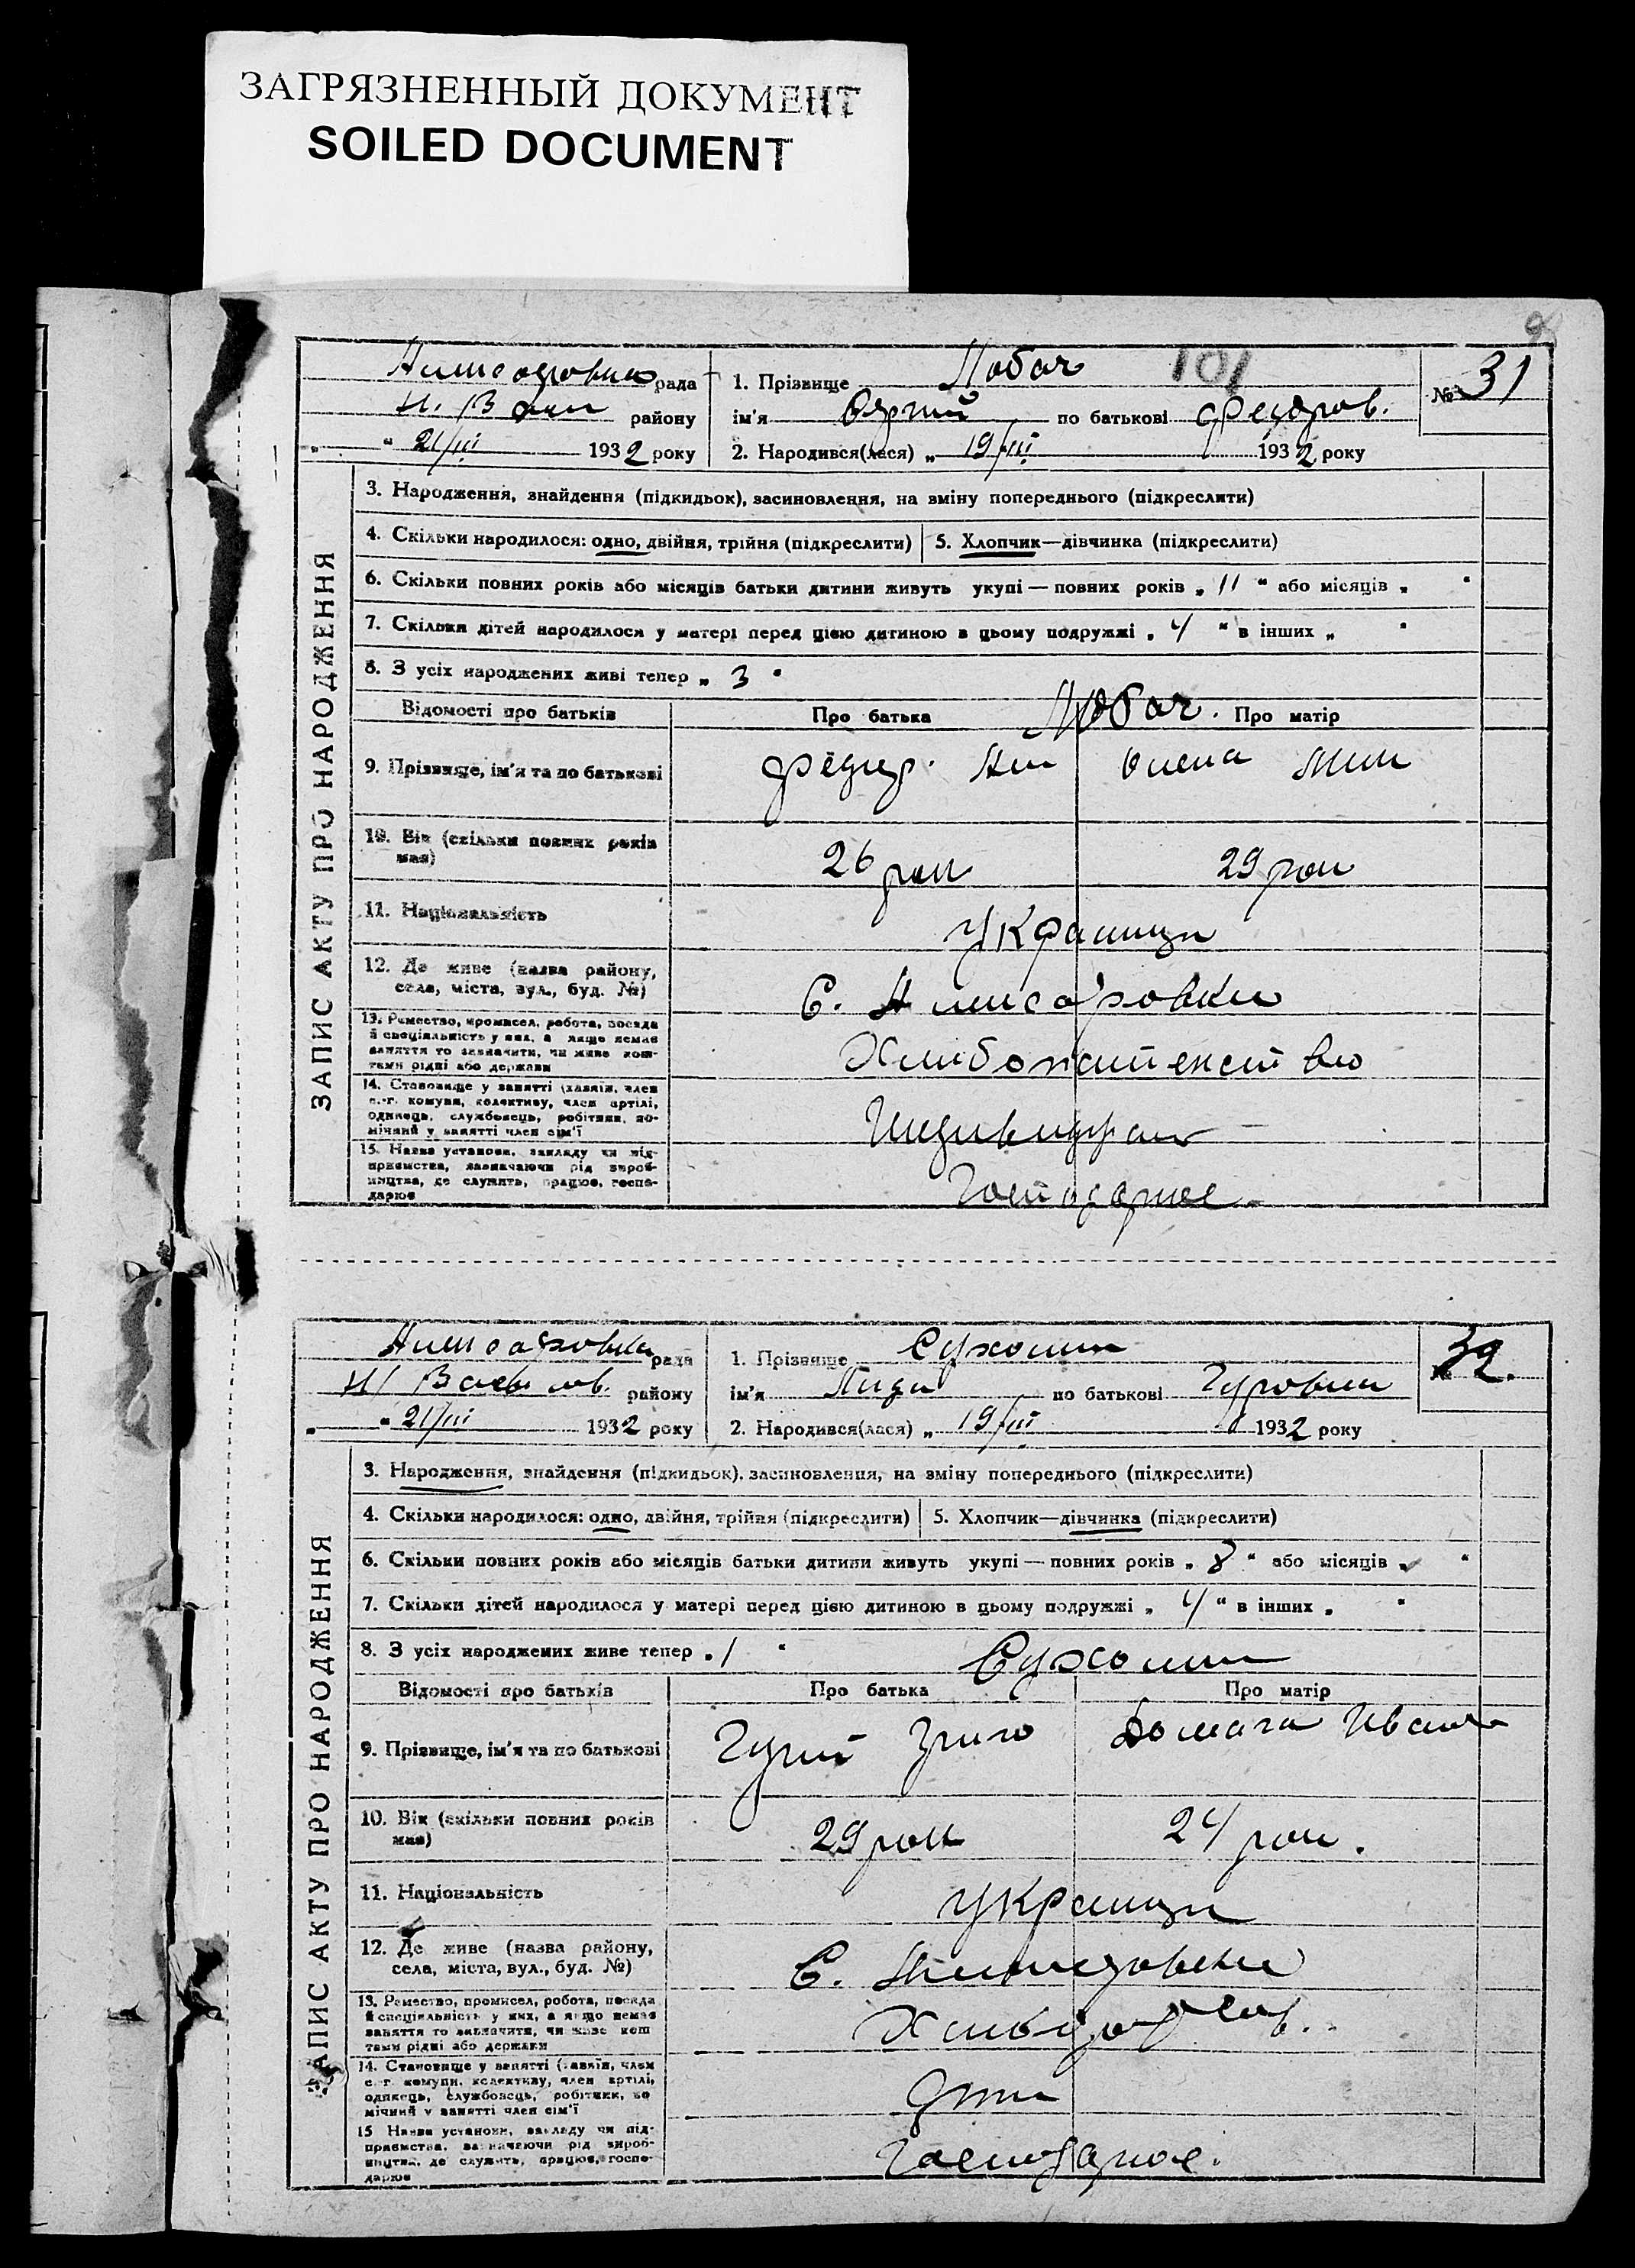 ЗАГРЯЗНЕННЫЙ ДОКУМЕНТ
SOILED DOCUMENT
101
ЗАПИС АКТУ ПРО НАРОДЖЕННЯ
рада
району
" 21/III 1932 року
1. Прізвище Лобач
№ 31
ім'я по батькові Федоров.
2. Народився(лася) " 19/III 1932 року
3. Народження, знайдення (підкидьок), засиновлення, на зміну попереднього (підкреслити)
4. Скільки народилося: одно, двійня, трійня (підкреслити)
5. Хлопчик—дівчинка (підкреслити)
6. Скільки повних років або місяців батьки дитини живуть укупі — повних років „ 11 " або місяців „ "
7. Скільки дітей народилося у матері перед цією дитиною в цьому подружжі „ 4 " в інших „ "
8. З усіх народжених живі тепер „ 3 "
Лобач.
Відомості про батьків Про батька Про матір
9. Прізвище, ім'я та по батькові Федір Олена
10. Вік (скільки повних років має) 26 рок 29 рок
11. Національність Українци
12. Де живе (назва району, села, міста, вул., буд. №) С.
13. Ремество, промисел, робота, посада
й спеціальність у них, а якщо немає
заняття то зазначити, чи живе кош-
тами рідні або держави
14. Становище у занятті (хазяїн, член
с.-г. комуни, колективу, член артілі,
одинець, службовець, робітник, по-
мічний у занятті член сім'ї
15. Назва установи, закладу чи під-
приємства, зазначаючи рід вироб-
ництва, де служить, працює, госпо-
дарює
Господарює
ЗАПИС АКТУ ПРО НАРОДЖЕННЯ
рада
району
" 21/III 1932 року
1. Прізвище Сухомин
32.
ім'я Лида по батькові Гуровна
2. Народився(лася) „ 19/III 1932 року
3. Народження, знайдення (підкидьок), засиновлення, на зміну попереднього (підкреслити)
4. Скільки народилося: одно, двійня, трійня (підкреслити)
5. Хлопчик—дівчинка (підкреслити)
6. Скільки повних років або місяців батьки дитини живуть укупі — повних років „ 8 " або місяців „ "
7. Скільки дітей народилося у матері перед цією дитиною в цьому подружжі „ 4 " в інших „ "
8. З усіх народжених живе тепер „ 1 "
Сухомин
Відомості про батьків Про батька Про матір
9. Прізвище, ім'я та по батькові Гурий Домаха Ивано
10. Вік (скільки повних років має) 29 рок 24 рок.
11. Національність Українци
12. Де живе (назва району, села, міста, вул., буд. №) С.
13. Ремество, промисел, робота, посада
й спеціальність у них, а якщо немає
заняття то зазначити, чи живе кош
тами рідні або держави
14. Становище у занятті (хазяїн, член
с.-г. комуни, колективу, член артілі,
одинець, службовець, робітник, по
мічний у занятті член сім'ї
15 Назва установи, закладу чи під-
приємства, зазначаючи рід вироб-
ництва, де служить, працює, госпо-
дарює
Господарює.